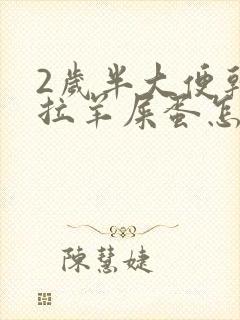 2歲半大便乾
拉羊屎蛋怎
陳慧婕